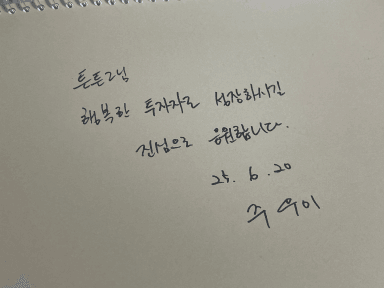 튼튼그님
행복한 투자자로 성장하시길
진심으로 응원합니다.
25. 6. 20
주우이